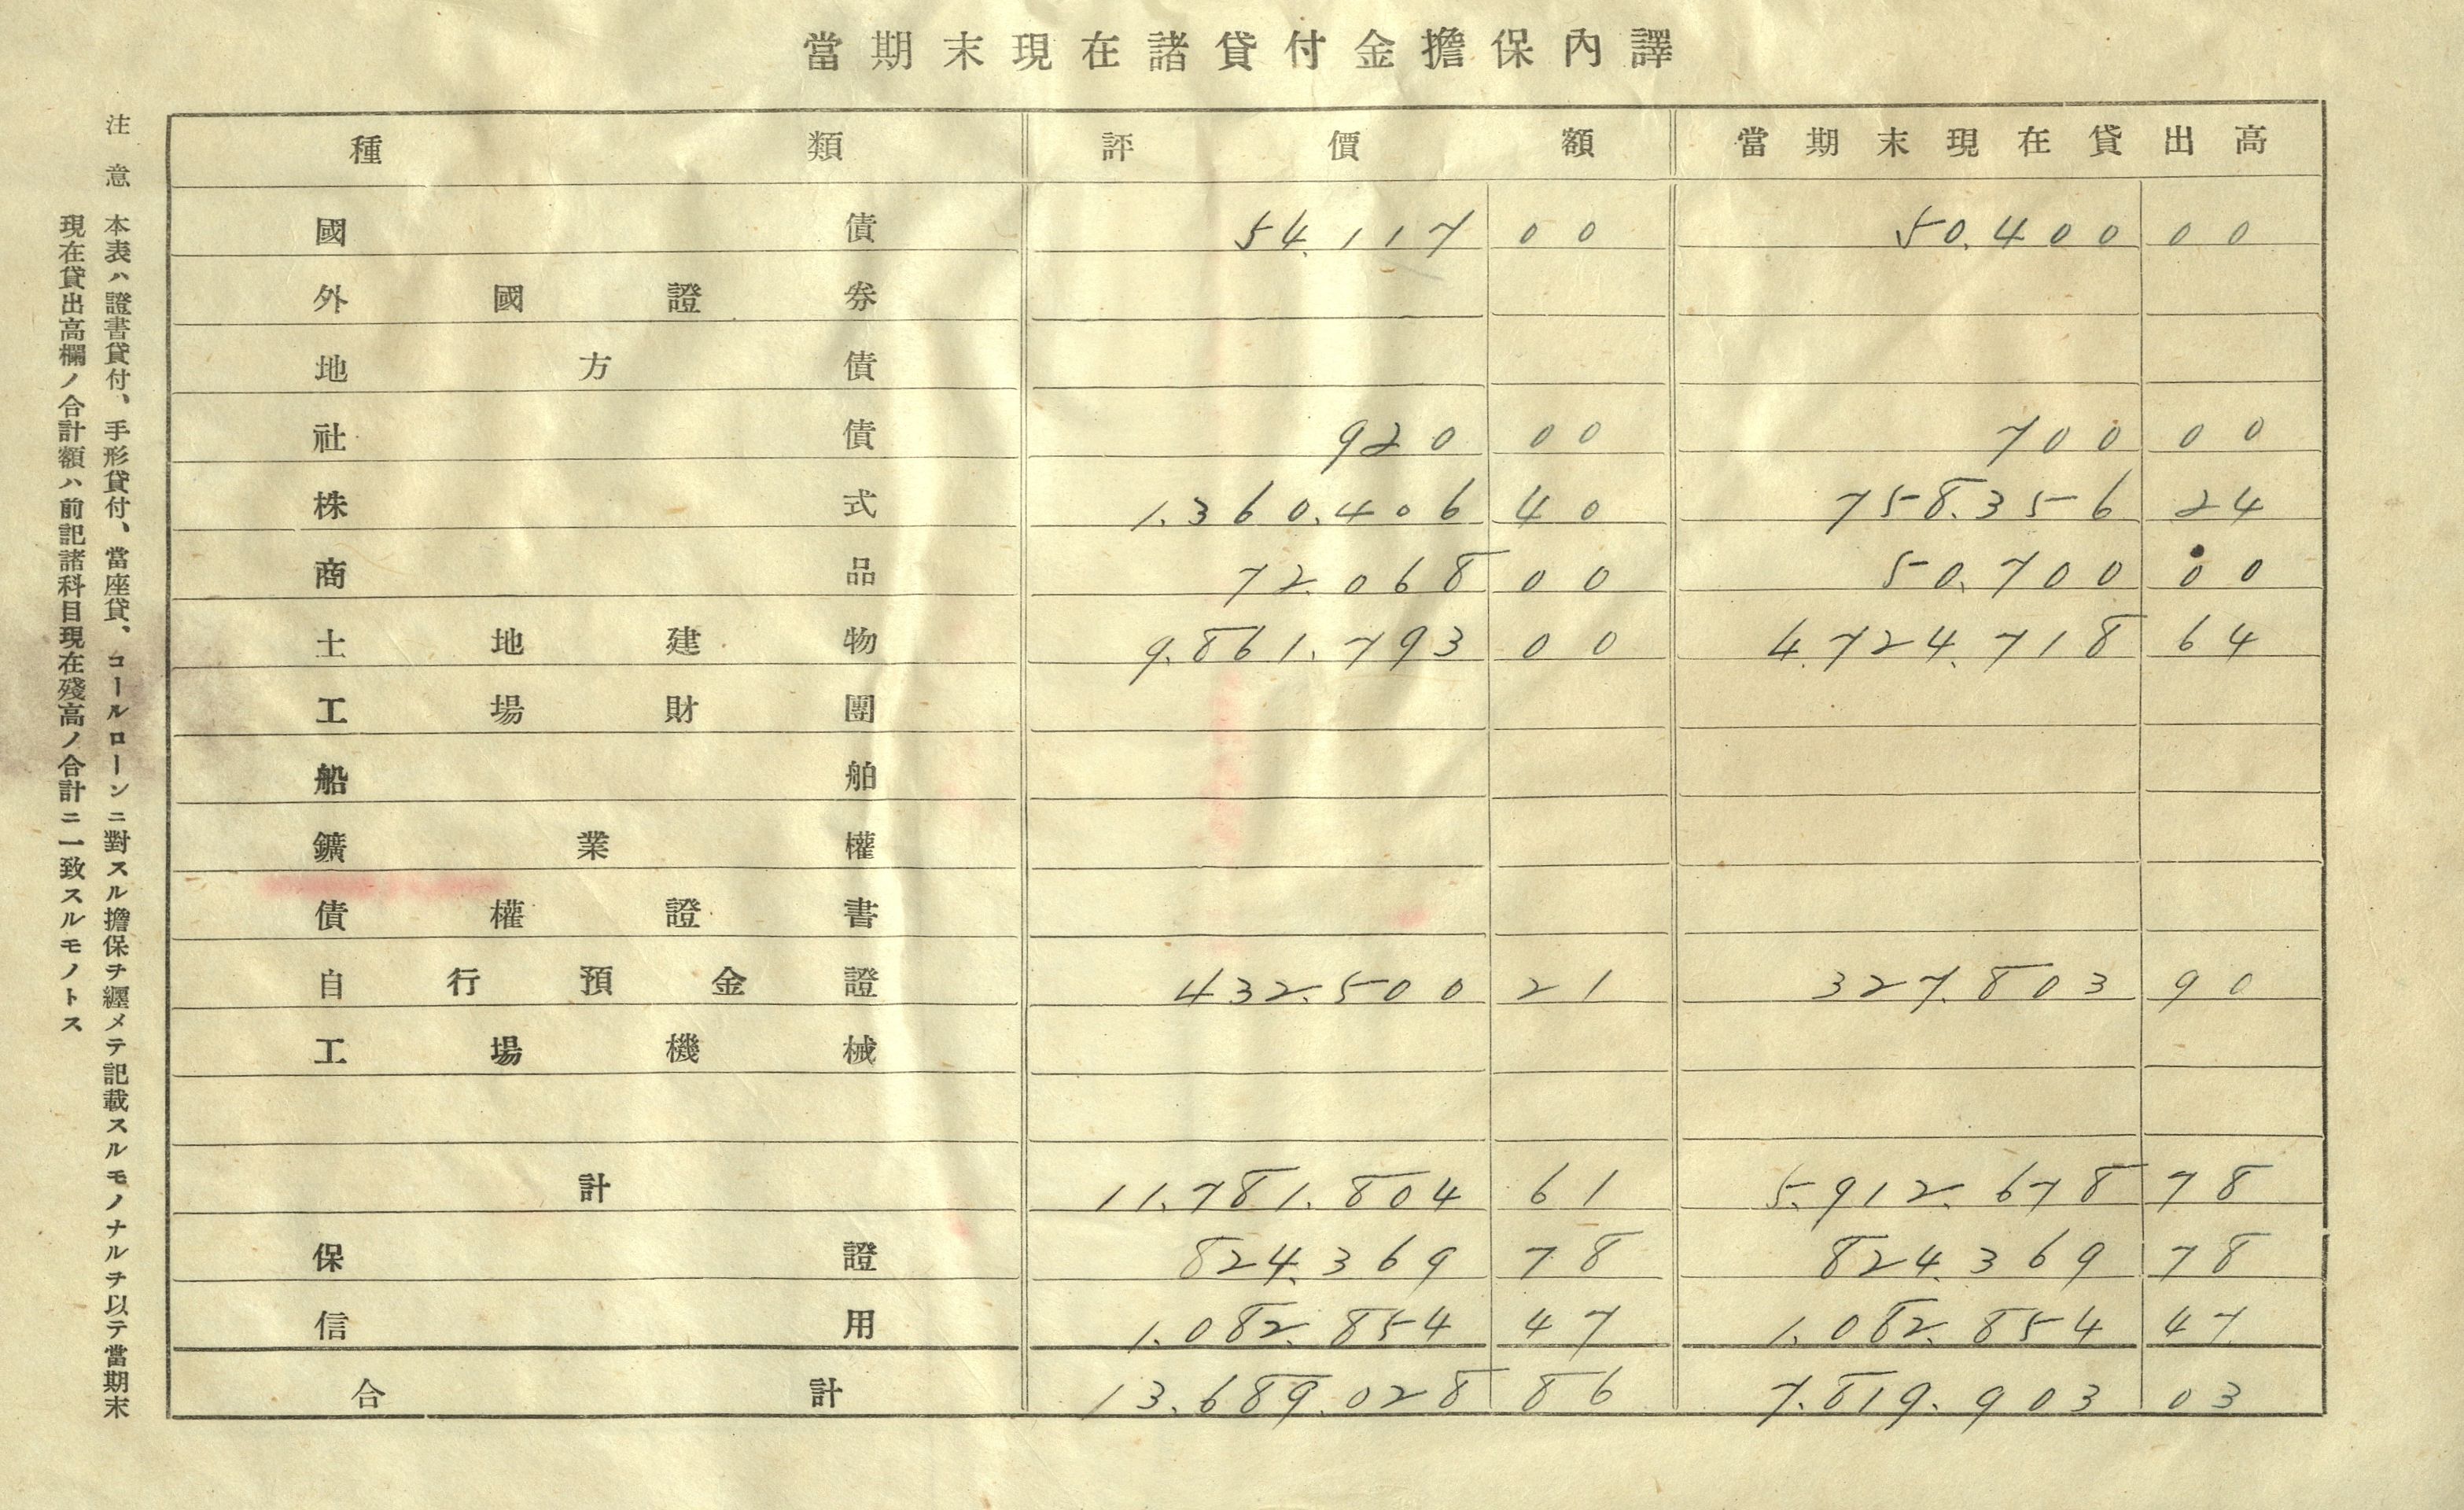 當期末現在諸貸付金擔保內譯
種類 評價額 當期末現在貸出高
國債 54.117 00 50.400 00
外國證券
地方債
社債 920 00 700 00
株式 1.360.406 40 758.356 24
商品 72.068 00 50.700 00
土地建物 9.861.793 00 4.724.718 64
工場財團
船舶
鑛業權
債權證書
自行預金證 432.500 21 327.803 90
工場機械
計 11.781.804 61 5.912.678 78
保證 824.369 78 824.369 78
信用 1.082.854 47 1.082.854 47
合計 13.689.028 86 7.819.903 03
注意 本表ハ證書貸付、手形貸付、當座貸、コールローンニ對スル擔保ヲ纒メテ記載スルモノナルヲ以テ當期末
現在貸出高欄ノ合計額ハ前記諸科目現在殘高ノ合計ニ一致スルモノトス